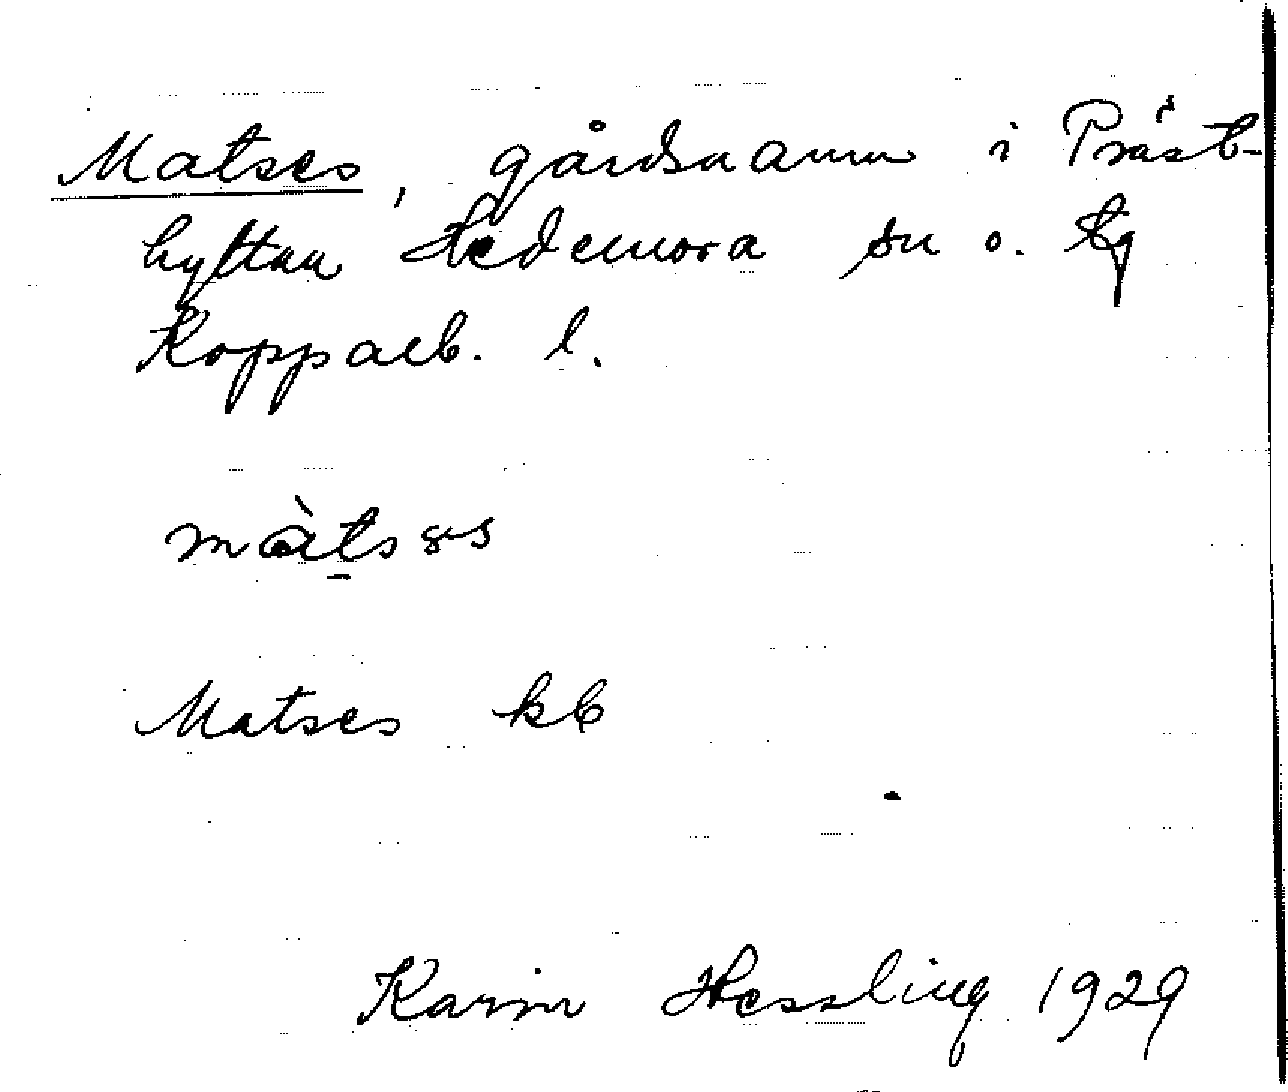 Matses, gårdsnamn i Präst-
hyttan Hedemora sn o. tg
Kopparb. l.
màtsəs
Matses kb
Karin Hessling 1929